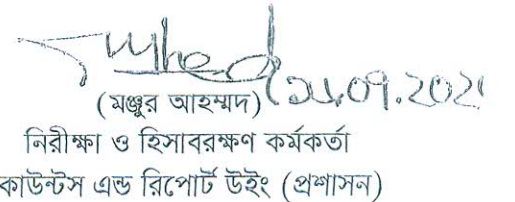 (মঞ্জুর আহম্মদ)
নিরীক্ষা ও হিসাবরক্ষণ কর্মকর্তা
কাউন্টস এন্ড রিপোর্ট উইং (প্রশাসন)